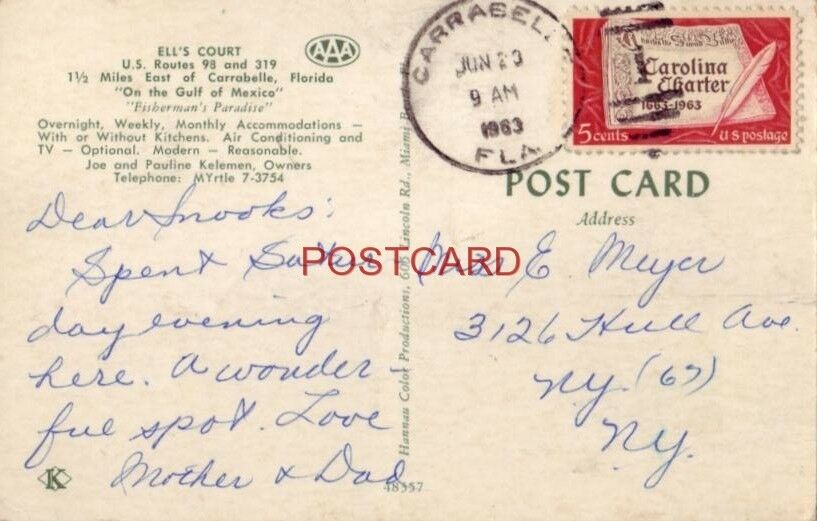 ELL'S COURT
U.S. Routes 98 and 319
1½ Miles East of Carrabelle, Florida
"On the Gulf of Mexico"
"Fisherman's Paradise"
Overnight, Weekly, Monthly Accommodations —
With or Without Kitchens. Air Conditioning and
TV — Optional. Modern — Reasonable.
Joe and Pauline Kelemen, Owners
Telephone: MYrtle 7-3754
AAA
CARRABELLE
JUN 23
9 AM
1963
FLA.
Carolina
Charter
1663-1963
5 cents
U S postage
POST CARD
Address
Dear Snooks:
Spent Satur
day evening
here. A wonder-
ful spot. Love
Mother & Dad
POSTCARD
E Meyer
3126 Hull Ave.
NY. (67)
N.Y.
Hannau Color Productions, 608 Lincoln Rd., Miami
K
48557